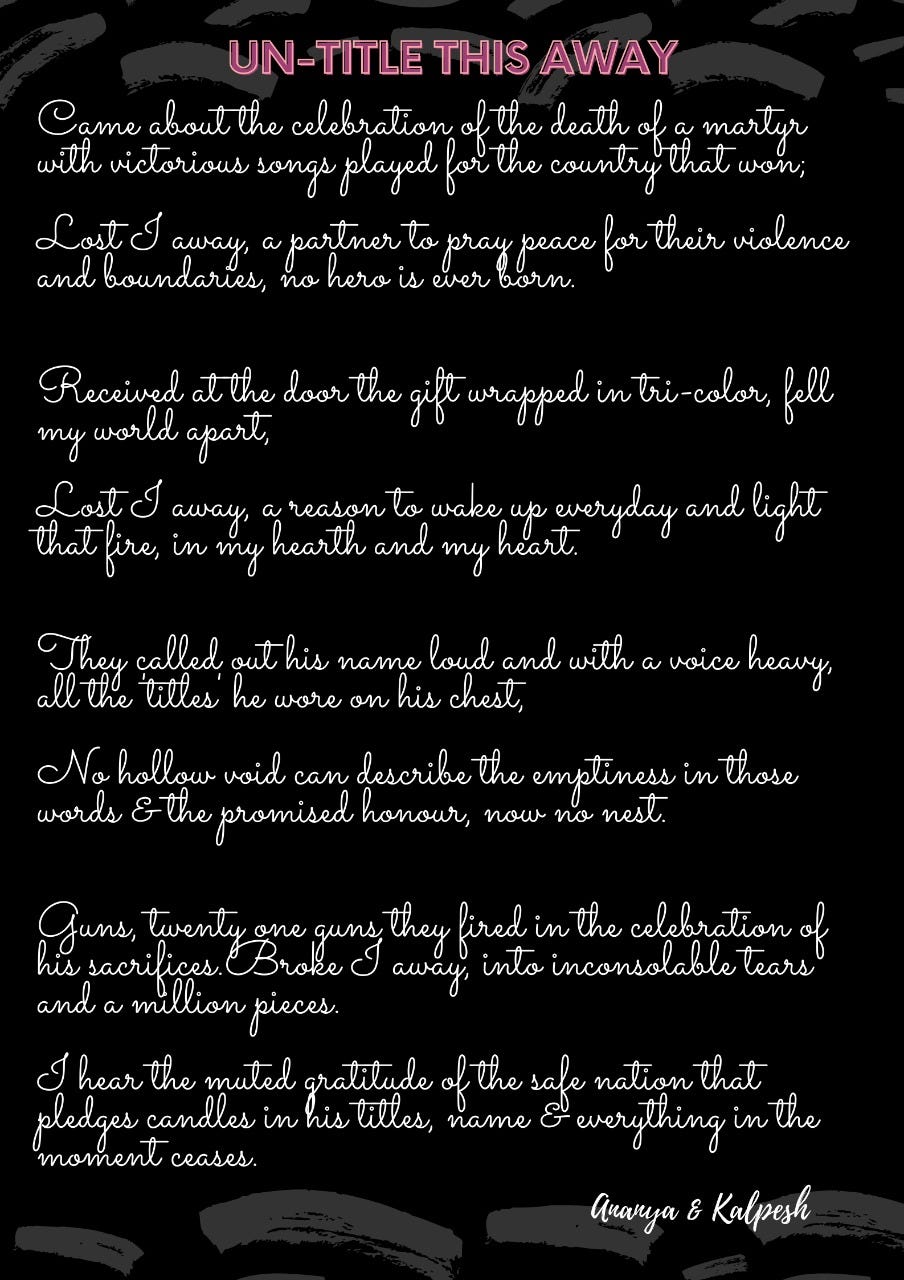 UN-TITLE THIS AWAY
Came about the celebration of the death of a martyr
with victorious songs played for the country that won;
Lost I away, a partner to pray peace for their violence
and boundaries, no hero is ever born.
Received at the door the gift wrapped in tri-color, fell
my world apart,
Lost I away, a reason to wake up everyday and light
that fire, in my hearth and my heart.
They called out his name loud and with a voice heavy,
all the 'titles' he wore on his chest,
No hollow void can describe the emptiness in those
words & the promised honour, now no nest.
Guns, twenty one guns they fired in the celebration of
his sacrifices. Broke I away, into inconsolable tears
and a million pieces.
I hear the muted gratitude of the safe nation that
pledges candles in his titles, name & everything in the
moment ceases.
Ananya & Kalpesh